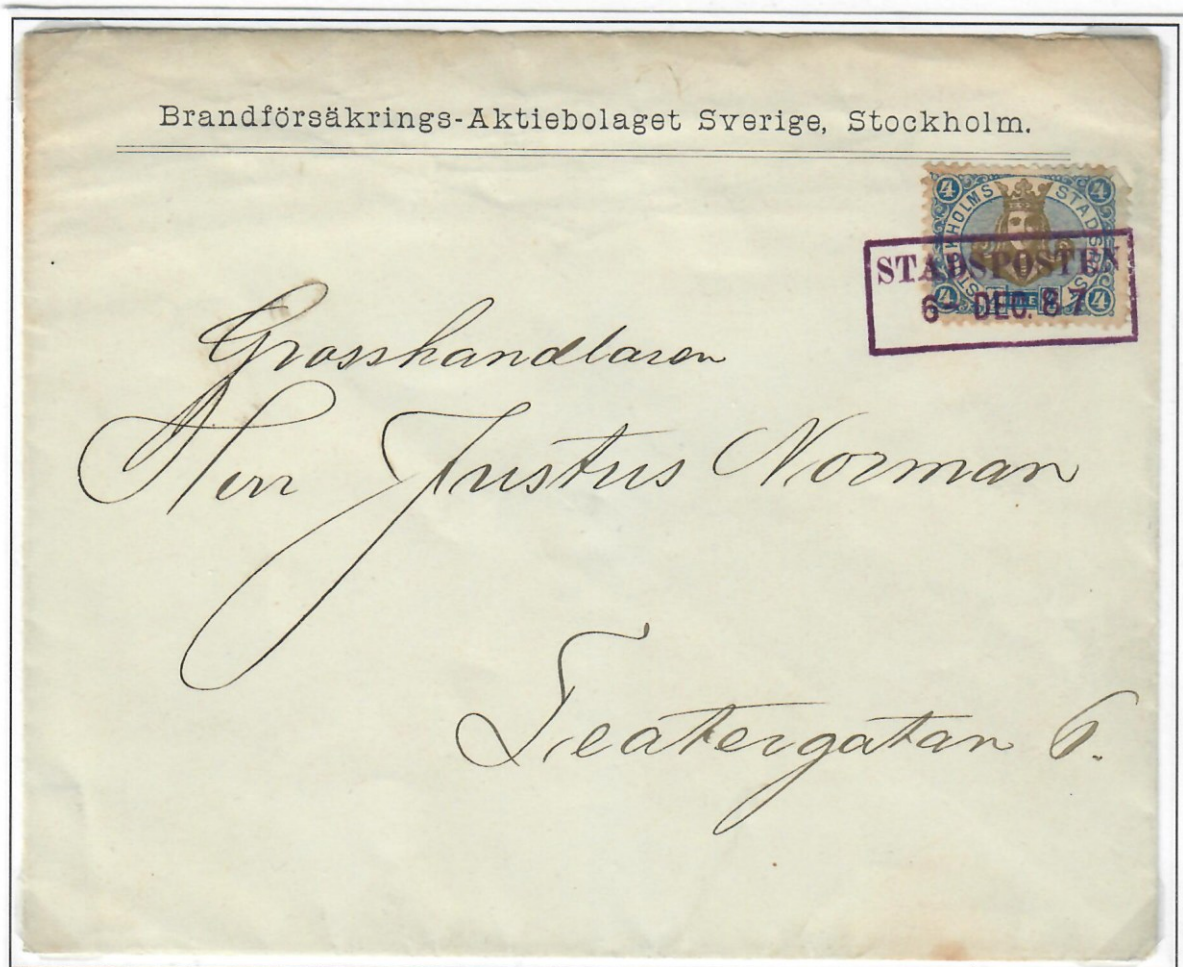 Brandförsäkrings-Aktiebolaget Sverige, Stockholm.
4 4
STADSPOSTEN
6- DEC. 87
4 4
Grosshandlaren
Herr Justus Norman
Teatergatan 6.